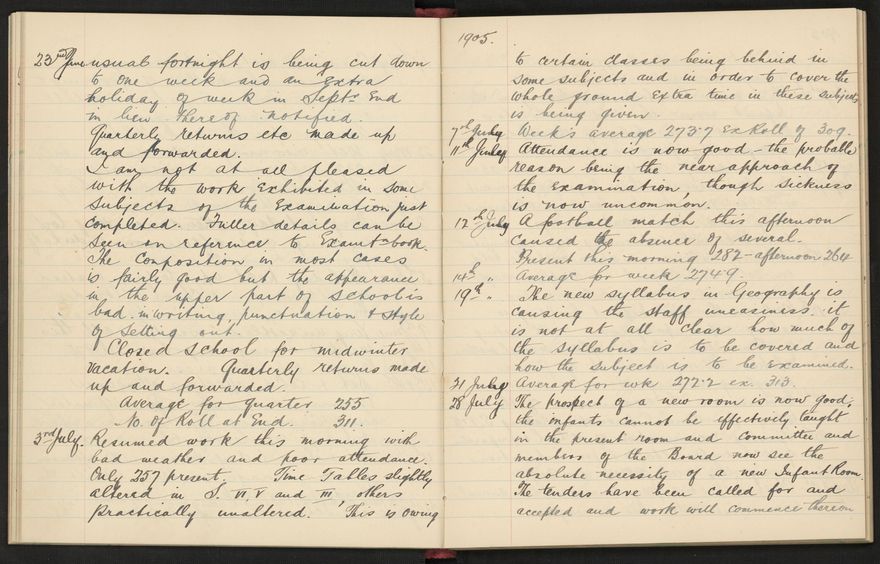 23rd June usual fortnight is being cut down
to one week and an extra
holiday of week in Septr End
in lieu thereof notified.
Quarterly returns etc made up
and forwarded.
I am not at all pleased
with the work Exhibited in some
subjects of the Examination just
completed. Fuller details can be
seen on reference to Examtn book.
The Composition in most cases
is fairly good but the appearance
in the upper part of school is
bad in writing, punctuation & style
of setting out.
Closed school for midwinter
vacation. Quarterly returns made
up and forwarded.
Average for Quarter 255
No. of Roll at End. 311.
3rd July. Resumed work this morning with
bad weather and poor attendance.
Only 257 present. Time Tables slightly
altered in S. VI V and III, others
practically unaltered. This is owing
1905.
to certain classes being behind in
some subjects and in order to cover the
whole ground Extra time in these subjects
is being given.
7th July Week's average 273.7 Ex Roll of 309.
11th July Attendance is now good - the probable
reason being the near approach of
the Examination, though sickness
is now uncommon.
12th July A football match this afternoon
caused the absence of several.
Present this morning 282 - afternoon 264
14th " Average for week 274.9.
19th " The new syllabus in Geography is
causing the staff uneasiness. it
is not at all clear how much of
the syllabus is to be covered and
how the subject is to be Examined.
21 July Average for wk 272.2 ex. 313.
28 July The prospect of a new room is now good;
the infants cannot be effectively taught
in the present room and committee and
members of the Board now see the
absolute necessity of a new Infant Room.
The tenders have been called for and
accepted and work will commence thereon